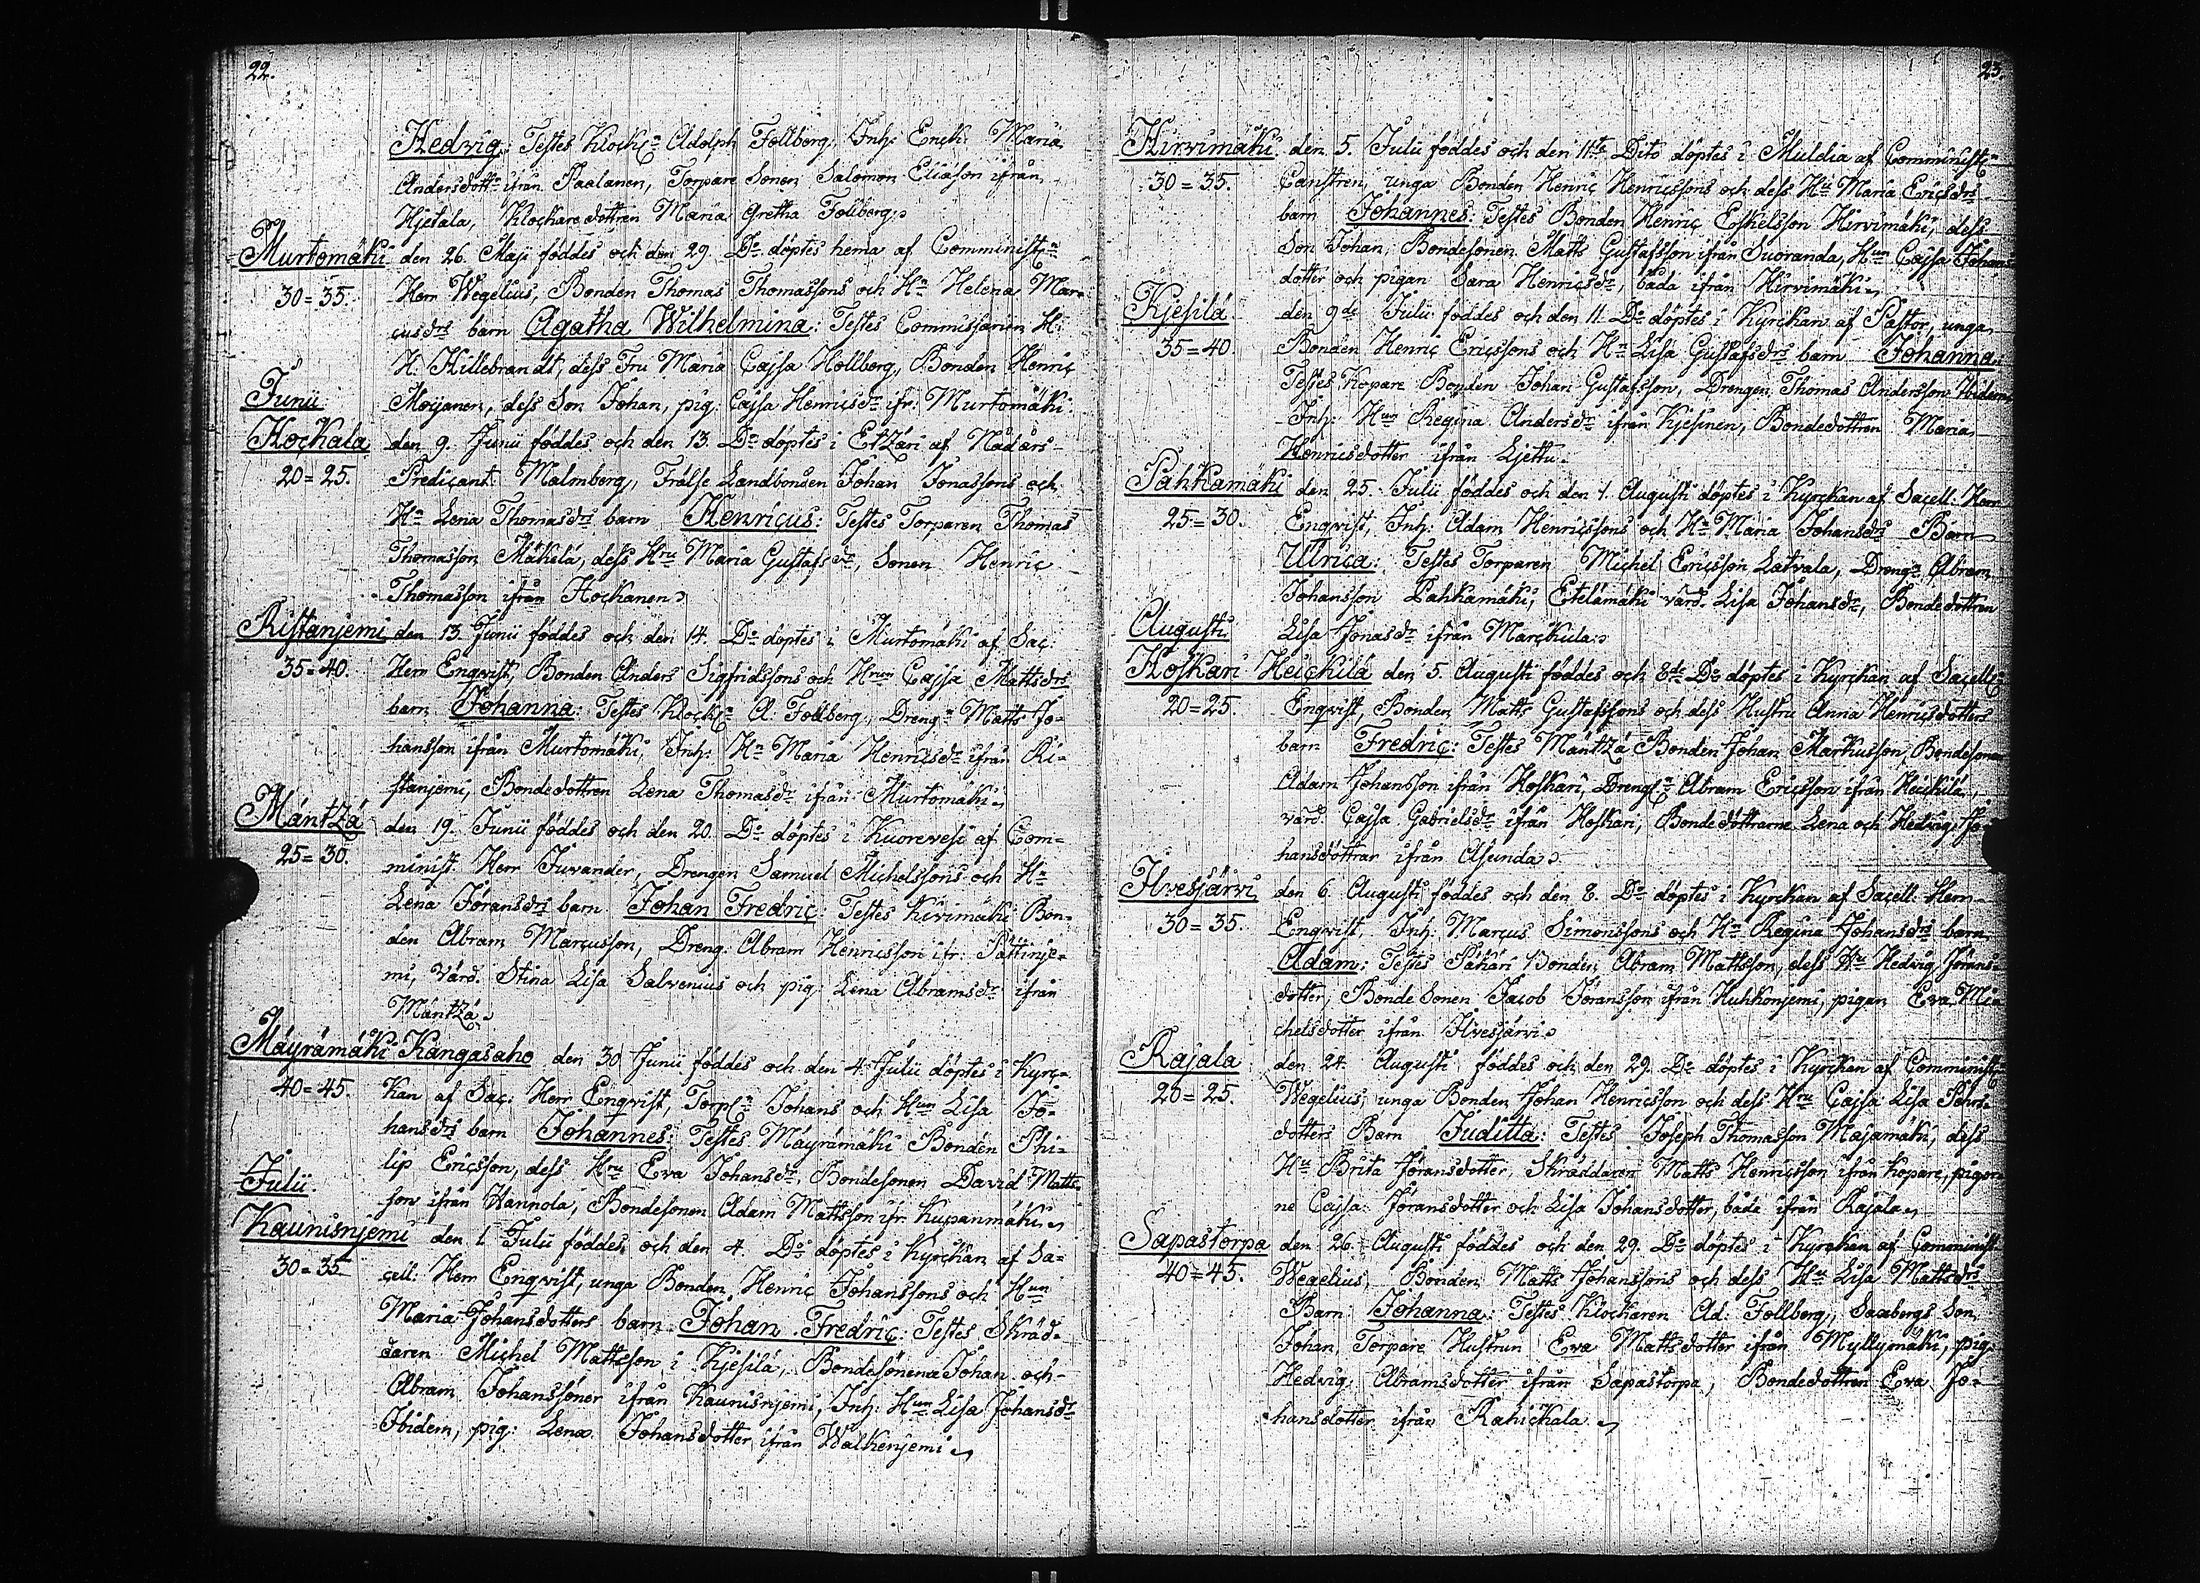 22.
Hedvig: Testes Klock: Adolph Follberg, Inh: Enck: Maria
Andersdottr ifrån Paalanen, Torpare Sonen Salomon Eliason ifrån
Hjetala, Klockaredottren Maria Gretha Follberg.
Murtomäki den 26. Maji föddes och den 29. Do döptes hema af Comminist:
30=35. Herr Wegelius, Bonden Thomas Thomassons och Hu Helena Mar=
cusdrs barn Agatha Wilhelmina: Testes Commissarien H:
H. Hillebrandt, dess Fru Maria Cajsa Hollberg, Bonden Henric
Junii Moijanen, dess Son Johan, pig: Cajsa Henricsdr ifr: Murtomäki.
Kockala den 9. Junii föddes och den 13. Do döptes i Etzäri af Nådårs=
20=25. Predicant Malmberg, Frälse Landbonden Johan Jonassons och
Hu Lena Thomasdrs barn Henricus: Testes Torparen Thomas
Thomasson Mäkelä, dess Hru Maria Gustafsdr, Sonen Henric
Thomasson ifrån Kockanen.
Ristanjemi den 13. Junii föddes och den 14. Do döptes i Murtomäki af Sac:
35=40. Herr Enqvist, Bonden Anders Sigfridssons och Hrun Cajsa Mattsdrs
barn Johanna: Testes Klock: A. Follberg, Dreng: Matts Jo=
hansson ifrån Murtomäki, Inh: Hu Maria Henricsdr ifrån Ri=
stanjemi, Bondedottren Lena Thomasdr ifrån Murtomäki.
Mäntzä den 19. Junii föddes och den 20. Do döptes i Kuorevesi af Com=
25=30. minist. Herr Juvander, Drengen Samuel Michelssons och Hu
Lena Jöransdrs barn Johan Fredric: Testes Kivimäki Bon=
den Abram Marcusson, Dreng: Abram Henricsson ifr: Pättinje=
mi, Värd. Stina Lisa Salvenius och pig: Lena Abramsdr ifrån
Mäntzä.
Mäyrämäki Kangasaho den 30 Junii föddes och den 4. Julii döptes i Kyrc=
40=45. kan af Sac: Herr Enqvist, Torp: Johans och Hun Lisa Jo=
hansdrs barn Johannes: Testes Mäyrämäki Bonden Phi=
lip Ericsson, dess Hru Eva Johansdr, Bondesonen David Matts=
Julii. son ifrån Hannola, Bondesonen Adam Mattsson ifr: Kupanmäki.
Kaunisnjemi den 1. Julii föddes och den 4. Do döptes i Kyrckan af Sa=
30=35 cell: Herr Enqvist, unga Bonden Henric Johanssons och Hun
Maria Johansdotters barn Johan Fredric: Testes Skräd=
daren Michel Mattsson i Kjesilä, Bondesönerna Johan och
Abram Johanssöner ifrån Kaunisnjemi, Inh: Hun Lisa Johansdr
Ibidem, pig: Lena Johansdotter ifrån Walkenjemi.
23.
Hirvimäki den 5. Julii föddes och den 11te Dito döptes i Muldia af Comminist:
30=35. Canstren, unga Bonden Henric Henricssons och dess Hu Maria Ericsdrs
barn Johannes: Testes Bonden Henric Eskelsson Hirvimäki, dess
Son Johan, Bondesonen Matts Gustafsson ifrån Suoranda, Hun Cajsa Johans=
dotter och pigan Sara Henricsdr, båda ifrån Hirvimäki.
Kjesilä den 9de Julii föddes och den 11. Do döptes i Kyrckan af Pastor, unga
35=40. Bonden Henric Ericssons och Hu Lisa Gustafsdrs barn Johanna:
Testes Kopare Bonden Johan Gustafsson, Drengen Thomas Andersson Ibidem,
Inh: Hun Regina Andersdr ifrån Kjesinen, Bondedottren Maria
Henricsdotter ifrån Ljettu.
Pahkamäki den 25. Julii föddes och den 1. Augusti döptes i Kyrckan af Sacell: Herr
25=30. Enqvist, Inh: Adam Henricssons och Hu Maria Johansdrs Barn
Ulrica: Testes Torparen Michel Ericsson Latvala, Dreng: Abram
Johansson Pahkamäki, Etelämäki värd. Lisa Johansdr, Bondedottren
Augusti Lisa Jonasdr ifrån Marckula.
Koskari Heickilä den 5. Augusti föddes och 8de Do döptes i Kyrckan af Sacell:
20=25. Enqvist, Bonden Matts Gustafssons och dess Hustru Anna Henricsdotters
barn Fredric: Testes Mäntzä Bonden Johan Markusson, Bondesonen
Adam Johansson ifrån Koskari, Dreng: Abram Ericsson ifrån Heickilä,
värd. Cajsa Gabrielsdr ifrån Koskari, Bondedöttrarne Lena och Hedvig Jo=
hansdöttrar ifrån Asunda.
Ilvesjärvi den 6. Augusti föddes och den 8. Do döptes i Kyrckan af Sacell: Herr
30=35. Enqvist, Inh: Marcus Simonssons och Hu Regina Johansdrs barn
Adam: Testes Pähäri Bonden Abram Mattsson, dess Hu Hedvig Jörans=
dotter, Bonde Sonen Jacob Jöransson ifrån Huhkonjemi, pigan Eva Mi=
chelsdotter ifrån Ilvesjärvi.
Rajala den 24. Augusti föddes och den 29. Do döptes i Kyrckan af Comminist:
20=25. Wegelius, unga Bonden Johan Henricsson och dess Hru Cajsa Lisa Pehrs=
dotters Barn Juditta: Testes Joseph Thomasson Majamäki, dess
Hu Brita Jöransdotter, Skräddaren Matts Henricsson ifrån Kopare, pigor=
ne Cajsa Jöransdotter och Lisa Johansdotter, båda ifrån Rajala.
Sapastorpa den 26. Augusti föddes och den 29. Do döptes i Kyrckan af Comminist:
40=45. Wegelius, Bonden Matts Johanssons och dess Hu Lisa Mattsdrs
Barn: Johanna: Testes Klockaren Ad: Follberg, Saxbergs Son
Johan, Torpare Hustrun Eva Mattsdotter ifrån Myllymäki, pig:
Hedvig Abramsdotter ifrån Sapastorpa, Bondedottren Eva Jo=
hansdotter ifrån Rahickala.